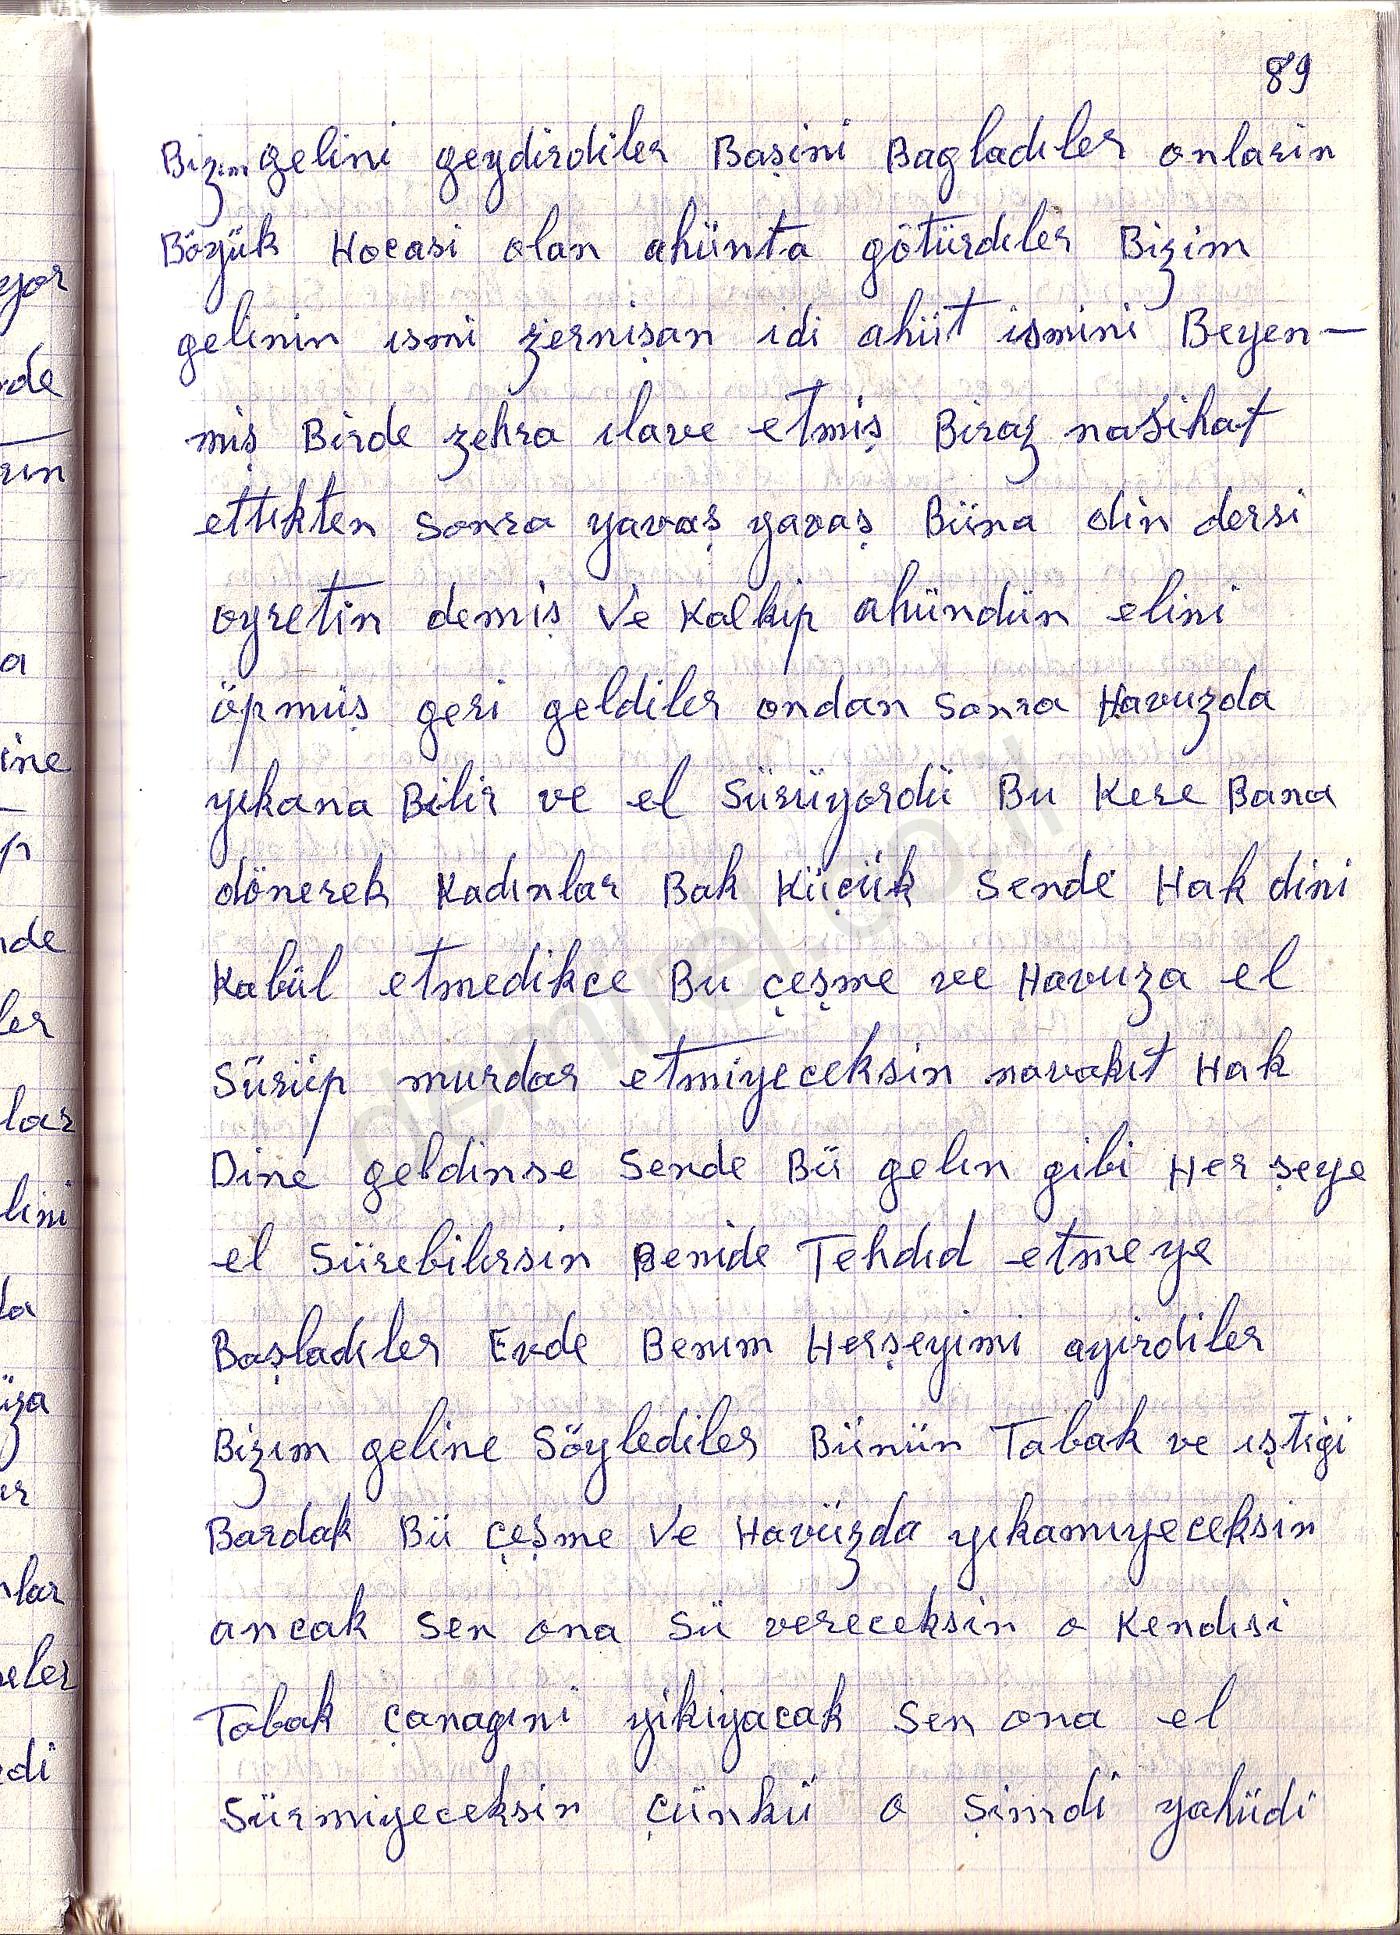 89
Bizim gelini geydirdiler Başini Bagladıler onlarin
Böyük Hocasi olan ahünta götürdıler Bizim
gelinin ısmi zernişan idi ahüt ismini Beyen-
miş Birde zehra ılave etmiş Biraz nasihat
ettıkten sonra yavaş yavaş Büna din dersi
oyretin demiş ve Kalkip ahündün elini
öpmüş geri geldiler ondan sonra Havuzda
yıkana Bilir ve el sürüyordü Bu Kere Bana
dönerek Kadınlar Bak Küçük sende Hak dini
Kabül etmedikce Bu çeşme ve Havuza el
Sürüp murdar etmiyeceksin navakıt Hak
Dine geldinse sende Bü gelın gibi Her şeye
el Sürebilırsin Benide Tehdıd etmeye
Başladıler Evde Benım Herşeyimi ayirdiler
Bizım geline Söylediler Bünün Tabak ve ıştıgi
Bardak Bü çeşme ve Havüzda yıkamıyeceksin
ancak sen ona sü vereceksin o Kendısi
Tabak çanagıni yikıyacak sen ona el
Sürmiyeceksin çünkü o şimdi yahüdi
demirel.co.il
eyor
rde
rın
a
ine
p
nde
ler
lar
lini
da
üza
ır
nlar
eler
rdi